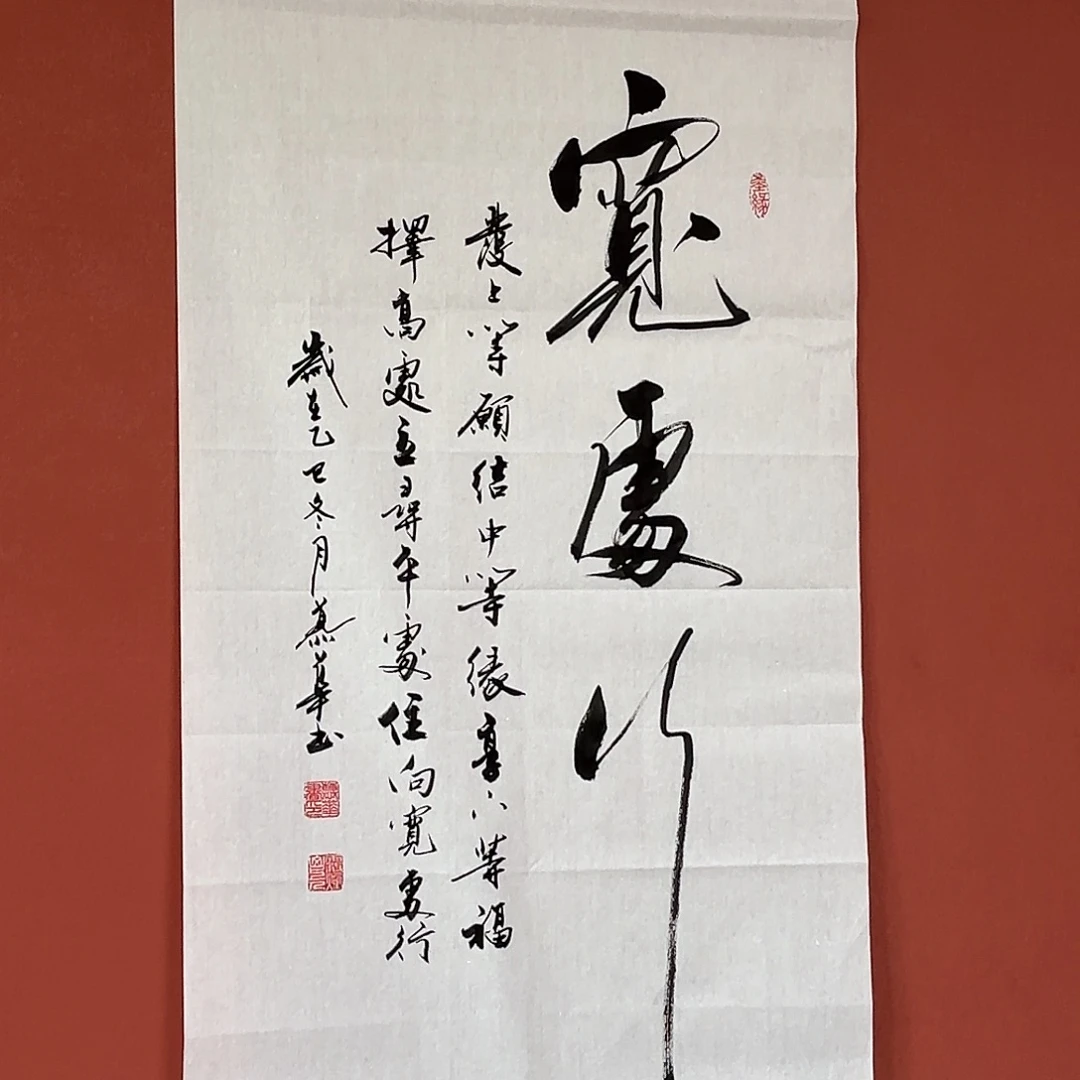 寬處行
發上等願結中等緣享下等福
擇高處立尋平處住向寬處行
歲在乙巳冬月慕華书